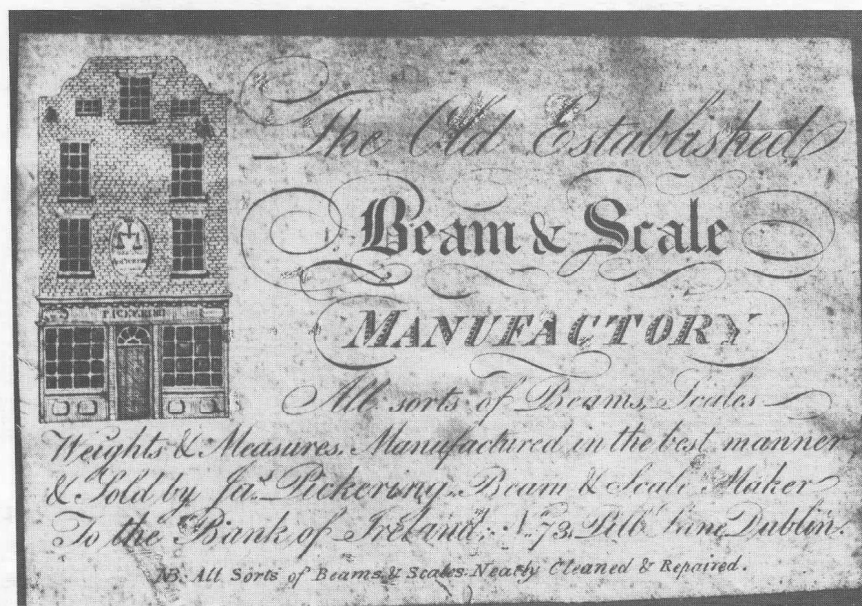 PICKERING
The Old Established
Beam & Scale
MANUFACTORY
All sorts of Beams, Scales
Weights & Measures. Manufactured in the best manner,
& Sold by Jas. Pickering, Beam & Scale Maker
To the Bank of Ireland, No. 73, Pill Lane Dublin.
NB. All Sorts of Beams & Scales Neatly Cleaned & Repaired.